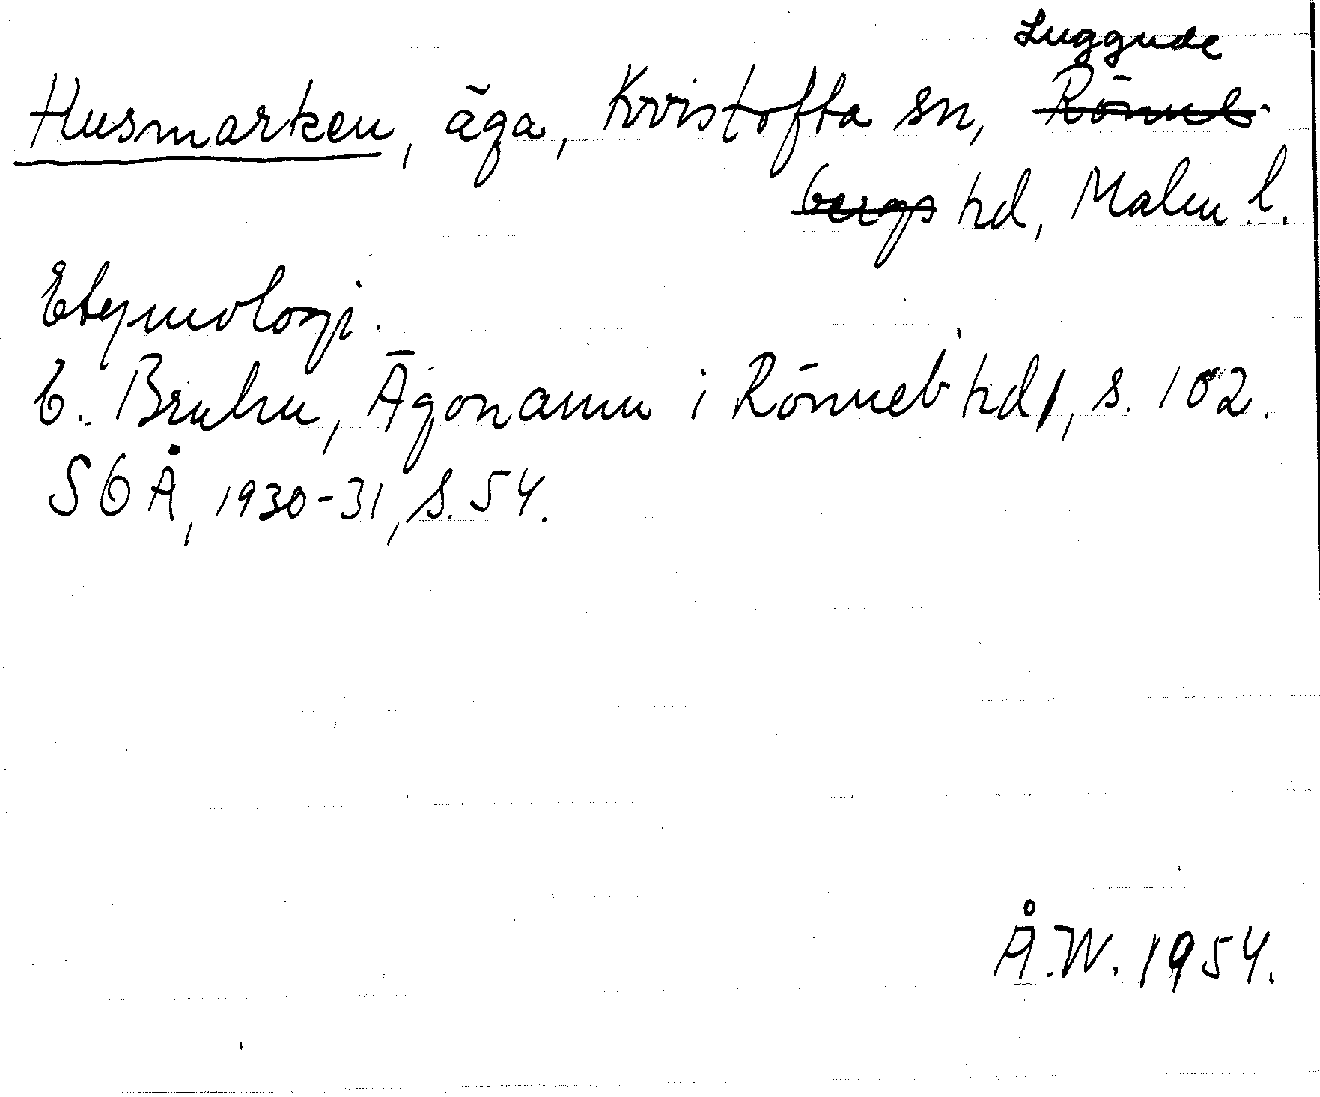 Luggude
Husmarken, äga, Kvistofta sn, Rönneb
bergs hd, Malm. l.
Etymologi.
B. Bruhn, Ägonamn i Rönneb hd, s. 102.
SGÅ, 1930-31, s. 54.
Å.W. 1954.